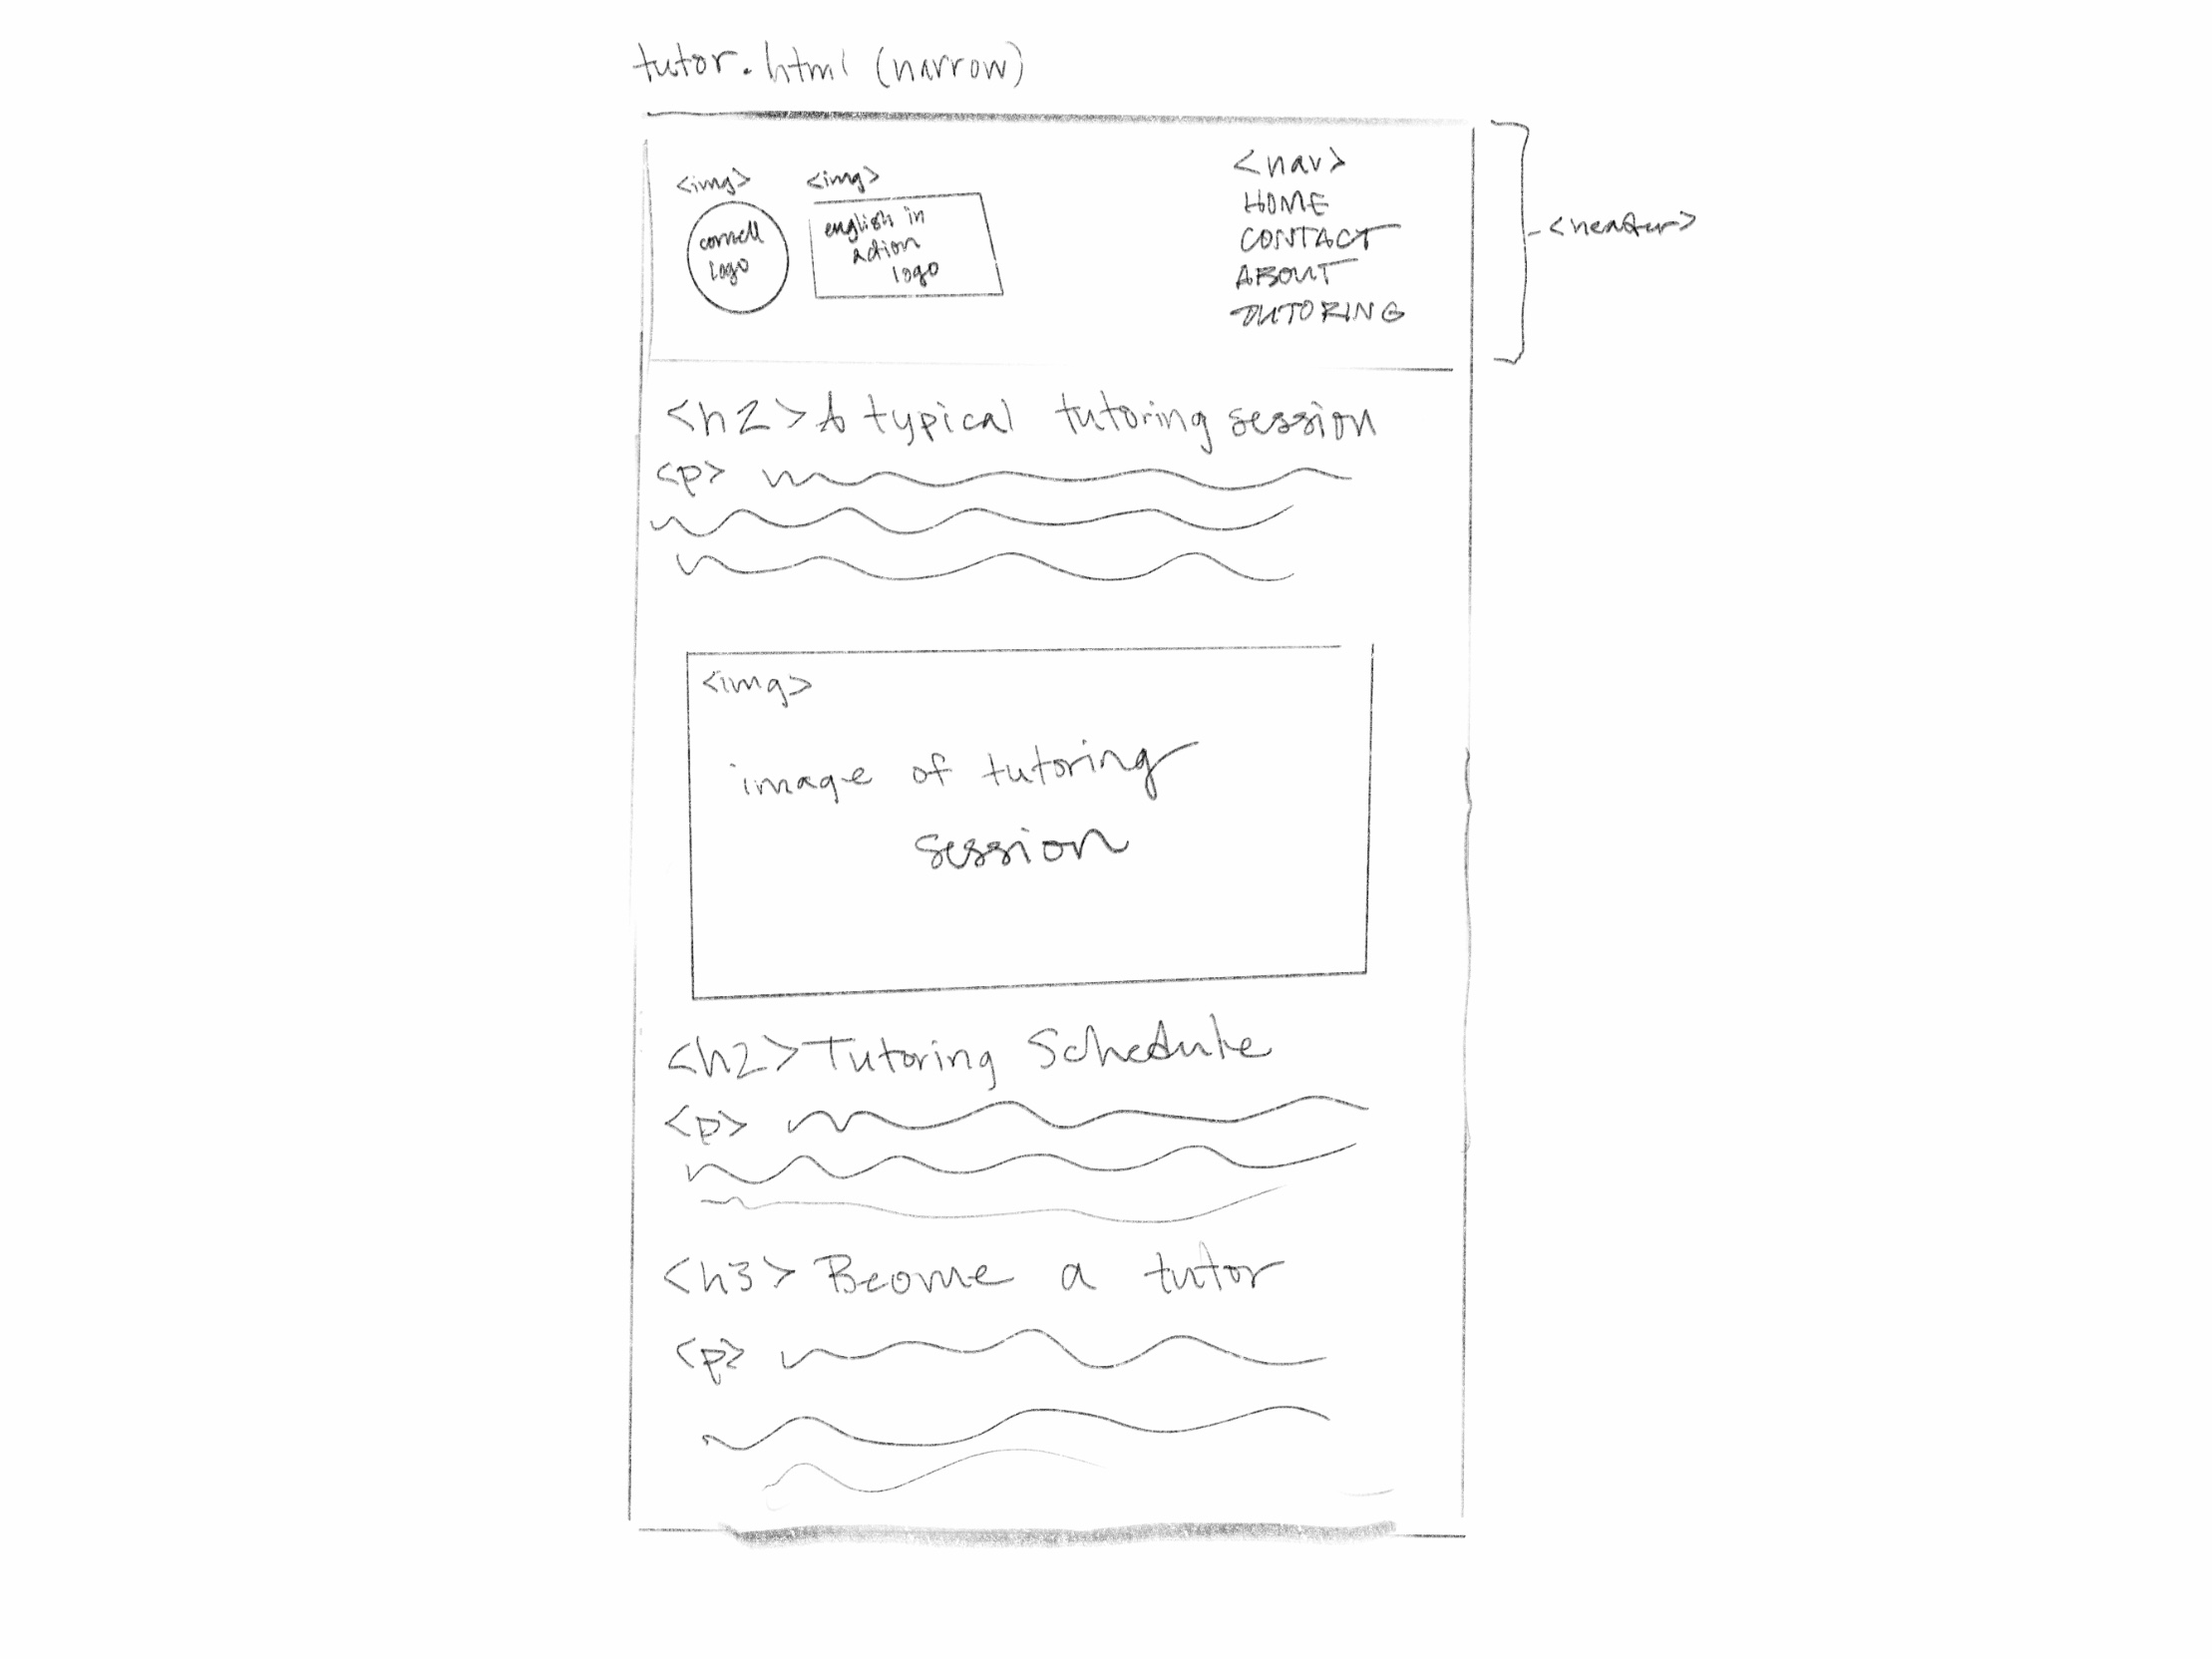 tutor.html (narrow)
<img>
cornell
logo
<img>
english in
action
logo
<nav>
HOME
CONTACT
ABOUT
TUTORING
<header>
<h2> A typical tutoring session
<p>
<img>
image of tutoring
session
<h2> Tutoring Schedule
<p>
<h3> Become a tutor
<p>